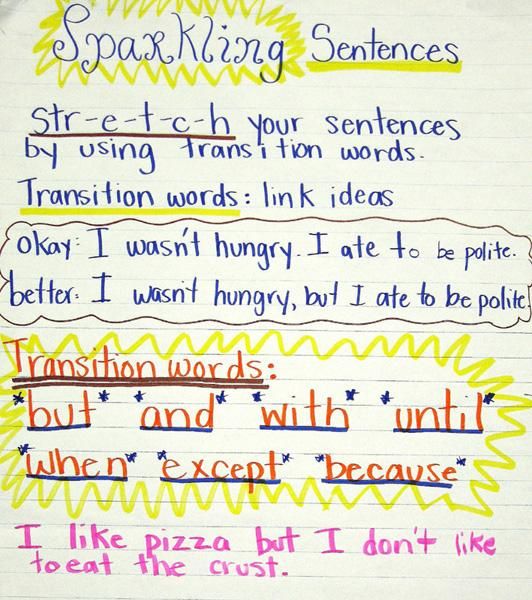 Sparkling Sentences
Str-e-t-c-h your sentences
by using transition words.
Transition words: link ideas
okay: I wasn't hungry. I ate to be polite.
better: I wasn't hungry, but I ate to be polite
Transition words:
*but* *and* *with* *until*
*when* *except* *because*
I like pizza but I don't like
to eat the crust.